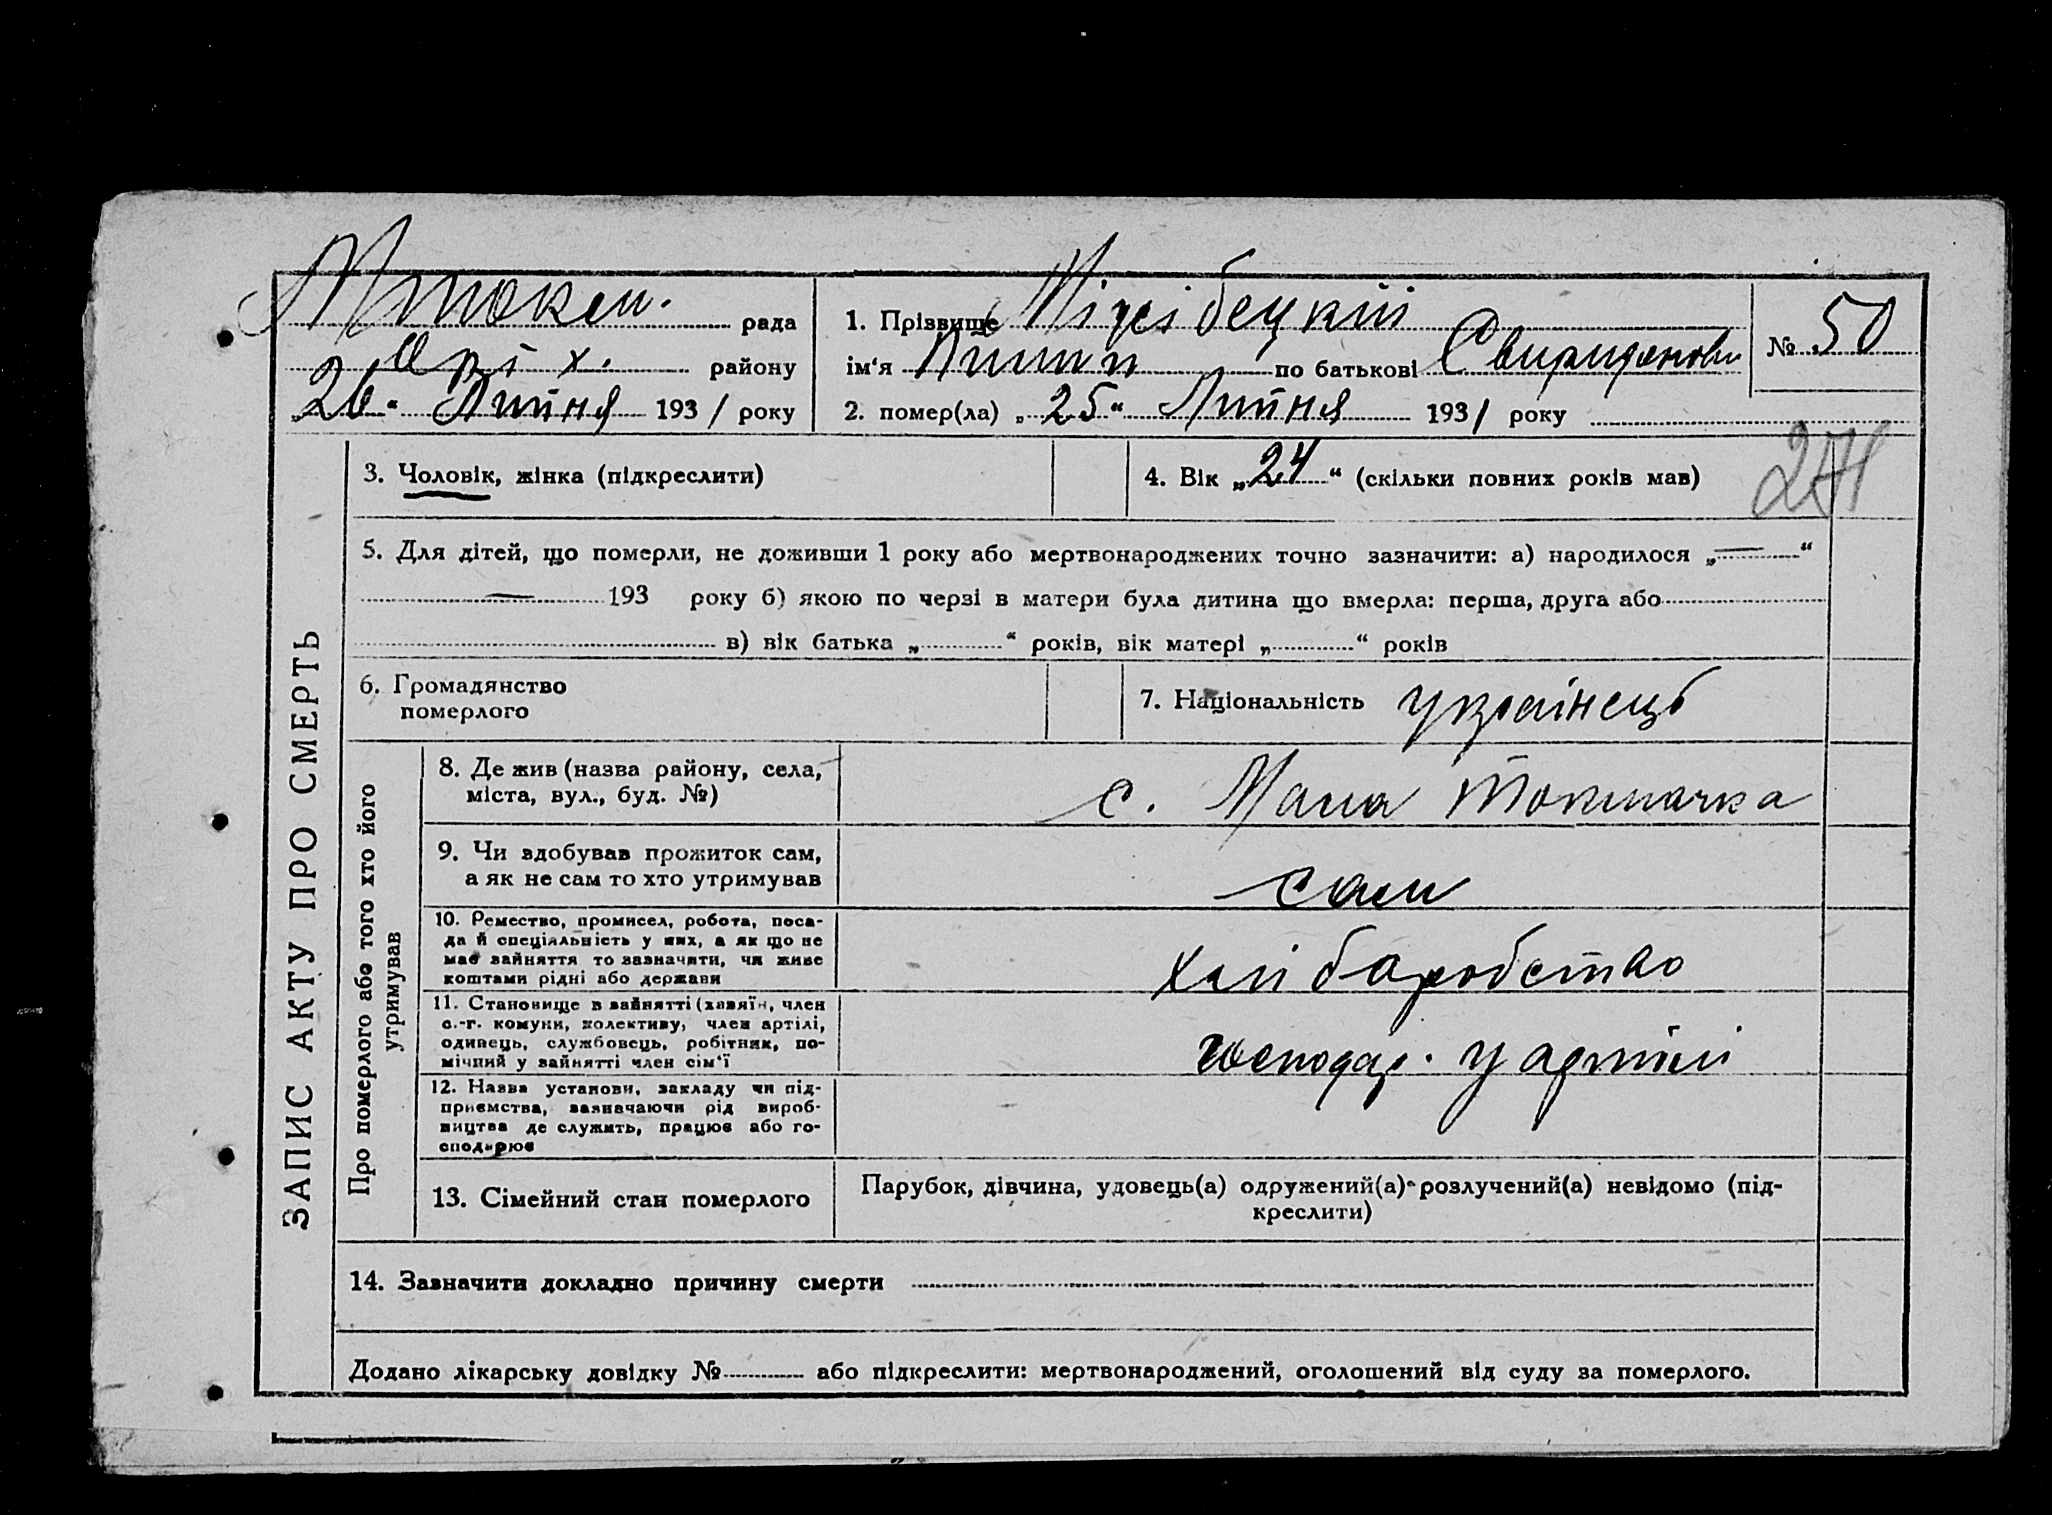 Мтокм. рада
Оріх. району
26 " Липня 1931 року
1. Прізвище
ім'я Пилип по батькові Свиридонов.
№ 50
2. помер(ла) „ 25 " Липня 1931 року
3. Чоловік, жінка (підкреслити)
4. Вік „ 24 " (скільки повних років мав)
5. Для дітей, що померли, не доживши 1 року або мертвонароджених точно зазначити: а) народилося „ — "
— 193 року б) якою по черзі в матери була дитина що вмерла: перша, друга або
в) вік батька „ " років, вік матері „ " років
6. Громадянство
померлого
7. Національність українець
ЗАПИС АКТУ ПРО СМЕРТЬ
Про померлого або того хто його
утримував
8. Де жив (назва району, села,
міста, вул., буд. №)
с. Мала Токмачка
9. Чи здобував прожиток сам,
а як не сам то хто утримував
сам
10. Ремество, промисел, робота, поса-
да й спеціяльність у них, а як що не
має зайняття то зазначити, чи живе
коштами рідні або держави
хліборобство
11. Становище в зайнятті (хазяїн, член
с.-г. комуни, колективу, член артілі,
одинець, службовець, робітник, по-
мічний у зайнятті член сім'ї
господар. у артілі
12. Назва установи, закладу чи під-
приємства, зазначаючи рід вироб-
ництва де служить, працює або го-
сподарює
13. Сімейний стан померлого
Парубок, дівчина, удовець(а) одружений(а) розлучений(а) невідомо (під-
креслити)
14. Зазначити докладно причину смерти
Додано лікарську довідку № або підкреслити: мертвонароджений, оголошений від суду за померлого.